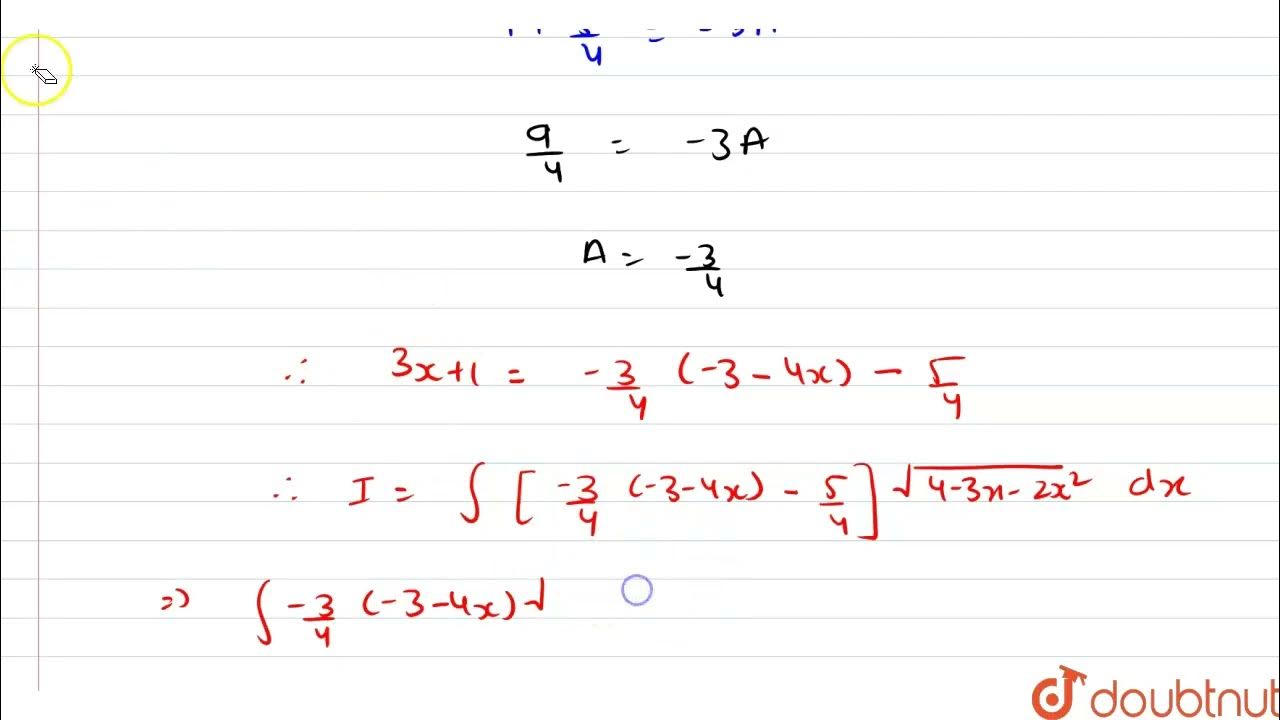 4
9/4 = -3A
A = -3/4
∴ 3x+1 = -3/4 (-3-4x) - 5/4
∴ I = ∫ [ -3/4 (-3-4x) - 5/4 ] √(4-3x-2x²) dx
=> ∫ -3/4 (-3-4x) √
doubtnut